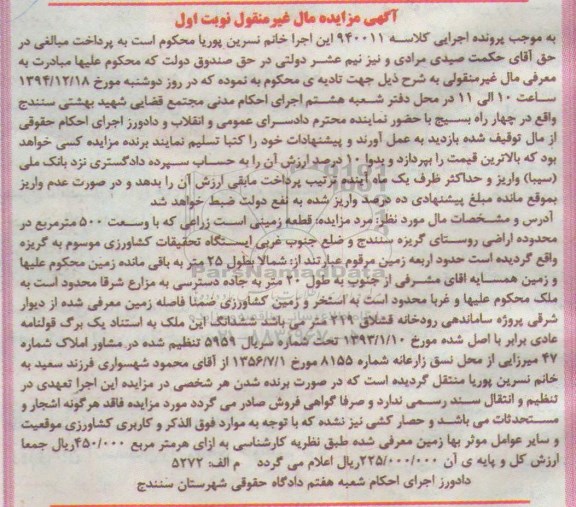 آگهی مزایده مال غیرمنقول نوبت اول
به موجب پرونده اجرایی کلاسه ۹۴۰۰۱۱ این اجرا خانم نسرین پوریا محکوم است به پرداخت مبالغی در
حق آقای حکمت صیدی مرادی و نیز نیم عشر دولتی در حق صندوق دولت که محکوم علیها مبادرت به
معرفی مال غیرمنقولی به شرح ذیل جهت تادیه ی محکوم به نموده که در روز دوشنبه مورخ ۱۳۹۴/۱۲/۱۸
ساعت ۱۰ الی ۱۱ در محل دفتر شعبه هشتم اجرای احکام مدنی مجتمع قضایی شهید بهشتی سنندج
واقع در چهار راه بسیج با حضور نماینده محترم دادسرای عمومی و انقلاب و دادورز اجرای احکام حقوقی
از مال توقیف شده بازدید به عمل آورند و پیشنهادات خود را کتبا تسلیم نمایند برنده مزایده کسی خواهد
بود که بالاترین قیمت را بپردازد و بدوا ۱۰ درصد ارزش آن را به حساب سپرده دادگستری نزد بانک ملی
(سیبا) واریز و حداکثر ظرف یک ماه آینده ترتیب پرداخت مابقی ارزش آن را بدهد و در صورت عدم واریز
بموقع مانده مبلغ پیشنهادی ده درصد واریز شده به نفع دولت ضبط خواهد شد
آدرس و مشخصات مال مورد نظر: مرد مزایده: قطعه زمینی است زراعی که با وسعت ۵۰۰ مترمربع در
محدوده اراضی روستای گریزه سنندج و ضلع جنوب غربی ایستگاه تحقیقات کشاورزی موسوم به گریزه
واقع گردیده است حدود اربعه زمین مرقوم عبارتند از: شمالا بطول ۲۵ متر به باقی مانده زمین محکوم علیها
و زمین همسایه اقای مشرفی از جنوب به طول ۲۰ متر به جاده دسترسی به مزارع شرقا محدود است به
ملک محکوم علیها و غربا محدود است به استخر و زمین کشاورزی ضمنا فاصله زمین معرفی شده از دیوار
شرقی پروژه ساماندهی رودخانه قشلاق ۲۱۱ متر می باشد ششدانگ این ملک به استناد یک برگ قولنامه
عادی برابر با اصل شده مورخ ۱۳۹۳/۱/۱۰ تحت شماره سریال ۵۹۵۹ تنظیم شده در مشاور املاک شماره
۴۷ میرزایی از محل نسق زارعانه شماره ۸۱۵۵ مورخ ۱۳۵۶/۷/۱ از آقای محمود شهسواری فرزند سعید به
خانم نسرین پوریا منتقل گردیده است که در صورت برنده شدن هر شخصی در مزایده این اجرا تعهدی در
تنظیم و انتقال سند رسمی ندارد و صرفا گواهی فروش صادر می گردد مورد مزایده فاقد هرگونه اشجار و
مستحدثات می باشد و حصار کشی نیز نشده که با توجه به موارد فوق الذکر و کاربری کشاورزی موقعیت
و سایر عوامل موثر بها زمین معرفی شده طبق نظریه کارشناسی به ازای هرمتر مربع ۴۵۰/۰۰۰ریال جمعا
ارزش کل و پایه ی آن ۲۲۵/۰۰۰/۰۰۰ریال اعلام می گردد م الف: ۵۲۷۲
دادورز اجرای احکام شعبه هفتم دادگاه حقوقی شهرستان سنندج
ParsNamadData